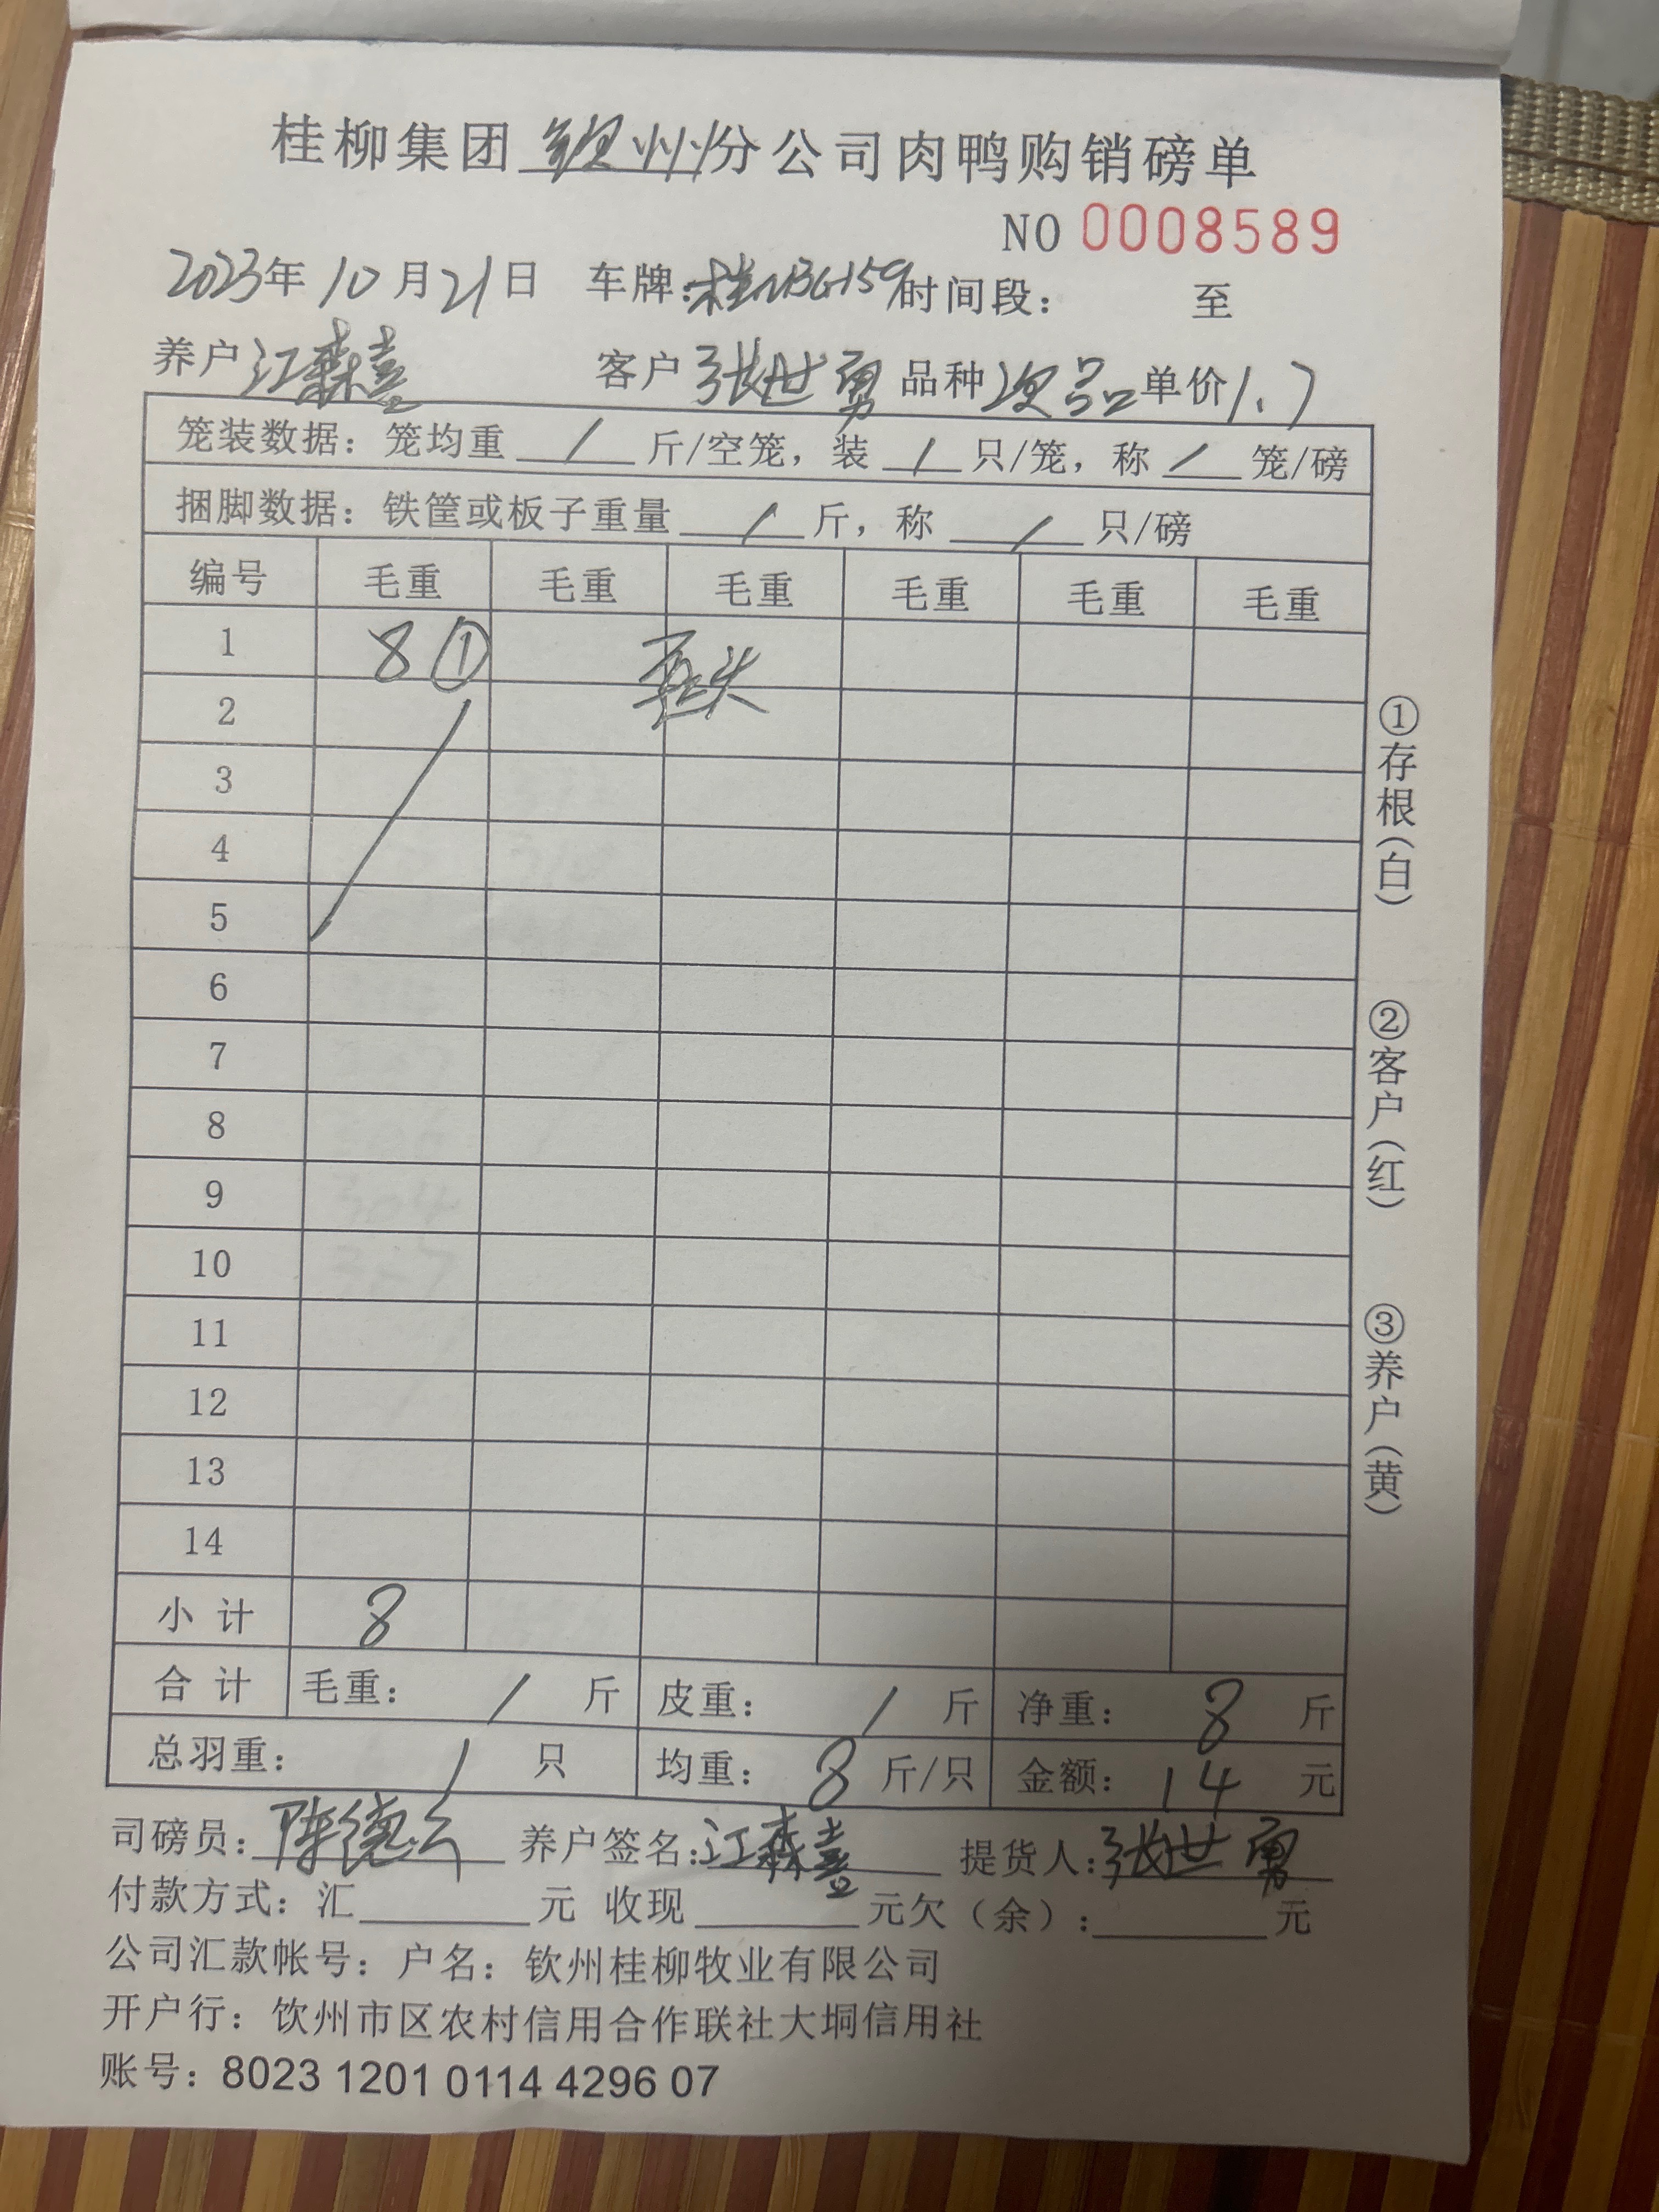 桂柳集团钦州分公司肉鸭购销磅单
NO 0008589
2023年10月21日 车牌:桂NBG159时间段: 至
养户江森喜 客户张世勇 品种次品单价1.7
笼装数据: 笼均重 / 斤/空笼, 装 / 只/笼, 称 / 笼/磅
捆脚数据: 铁筐或板子重量 / 斤, 称 / 只/磅
编号 毛重 毛重 毛重 毛重 毛重 毛重
1 8 ①
2
3
4
5
6
7
8
9
10
11
12
13
14
小 计 8
合 计 毛重: / 斤 皮重: / 斤 净重: 8 斤
总羽重: 1 只 均重: 8 斤/只 金额: 14 元
司磅员: 陈德 养户签名:江森喜 提货人:张世勇
付款方式: 汇 元 收现 元欠(余): 元
公司汇款帐号: 户名: 钦州桂柳牧业有限公司
开户行: 饮州市区农村信用合作联社大垌信用社
账号: 8023 1201 0114 4296 07
①存根(白)
②客户(红)
③养户(黄)